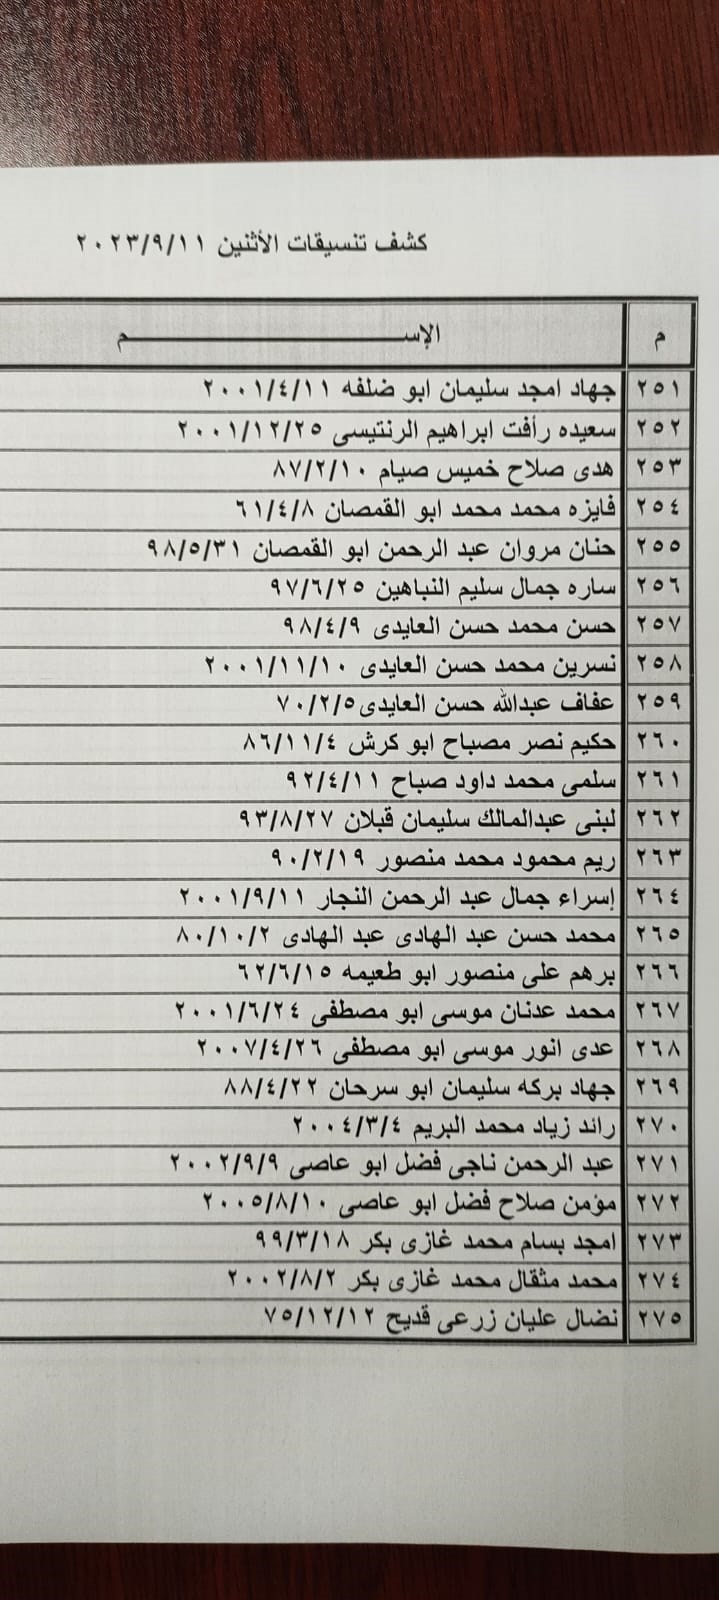 كشف تنسيقات الأثنين ٢٠٢٣/٩/١١
م الإســـــــــــــم
٢٥١ جهاد امجد سليمان ابو ضلفه ٢٠٠١/٤/١١
٢٥٢ سعيده رأفت ابراهيم الرنتيسى ٢٠٠١/١٢/٢٥
٢٥٣ هدى صلاح خميس صيام ٨٧/٢/١٠
٢٥٤ فايزه محمد محمد ابو القمصان ٦١/٤/٨
٢٥٥ حنان مروان عبد الرحمن ابو القمصان ٩٨/٥/٣١
٢٥٦ ساره جمال سليم النباهين ٩٧/٦/٢٥
٢٥٧ حسن محمد حسن العايدى ٩٨/٤/٩
٢٥٨ نسرين محمد حسن العايدى ٢٠٠١/١١/١٠
٢٥٩ عفاف عبدالله حسن العايدى٧٠/٢/٥
٢٦٠ حكيم نصر مصباح ابو كرش ٨٦/١١/٤
٢٦١ سلمى محمد داود صباح ٩٢/٤/١١
٢٦٢ لبنى عبدالمالك سليمان قبلان ٩٣/٨/٢٧
٢٦٣ ريم محمود محمد منصور ٩٠/٢/١٩
٢٦٤ إسراء جمال عبد الرحمن النجار ٢٠٠١/٩/١١
٢٦٥ محمد حسن عبد الهادى عبد الهادى ٨٠/١٠/٢
٢٦٦ برهم على منصور ابو طعيمه ٦٢/٦/١٥
٢٦٧ محمد عدنان موسى ابو مصطفى ٢٠٠١/٦/٢٤
٢٦٨ عدى انور موسى ابو مصطفى ٢٠٠٧/٤/٢٦
٢٦٩ جهاد بركه سليمان ابو سرحان ٨٨/٤/٢٢
٢٧٠ رائد زياد محمد البريم ٢٠٠٤/٣/٤
٢٧١ عبد الرحمن ناجى فضل ابو عاصى ٢٠٠٢/٩/٩
٢٧٢ مؤمن صلاح فضل ابو عاصى ٢٠٠٥/٨/١٠
٢٧٣ امجد بسام محمد غازى بكر ٩٩/٣/١٨
٢٧٤ محمد مثقال محمد غازى بكر ٢٠٠٢/٨/٢
٢٧٥ نضال عليان زرعى قديح ٧٥/١٢/١٢